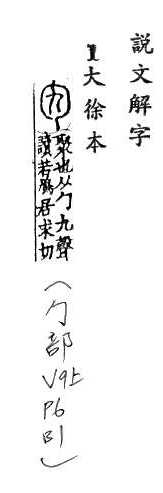 說文解字
1大徐本
聚也从勹九聲
讀若鳩居求切
(勹部
V9上
P6
B1)